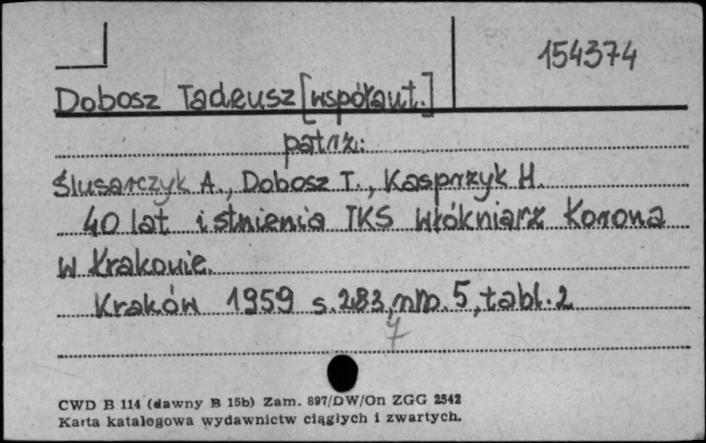 154374
Dobosz Tadeusz [współaut.]
patrz:
Ślusarczyk A., Dobosz T., Kasprzyk H.
40 lat istnienia TKS Włókniarz Korona
w Krakowie.
Kraków 1959 s. 283, nlb. 5, tabl. 2
7
CWD B 114 (dawny B 15b) Zam. 897/DW/On ZGG 2542
Karta katalogowa wydawnictw ciągłych i zwartych.